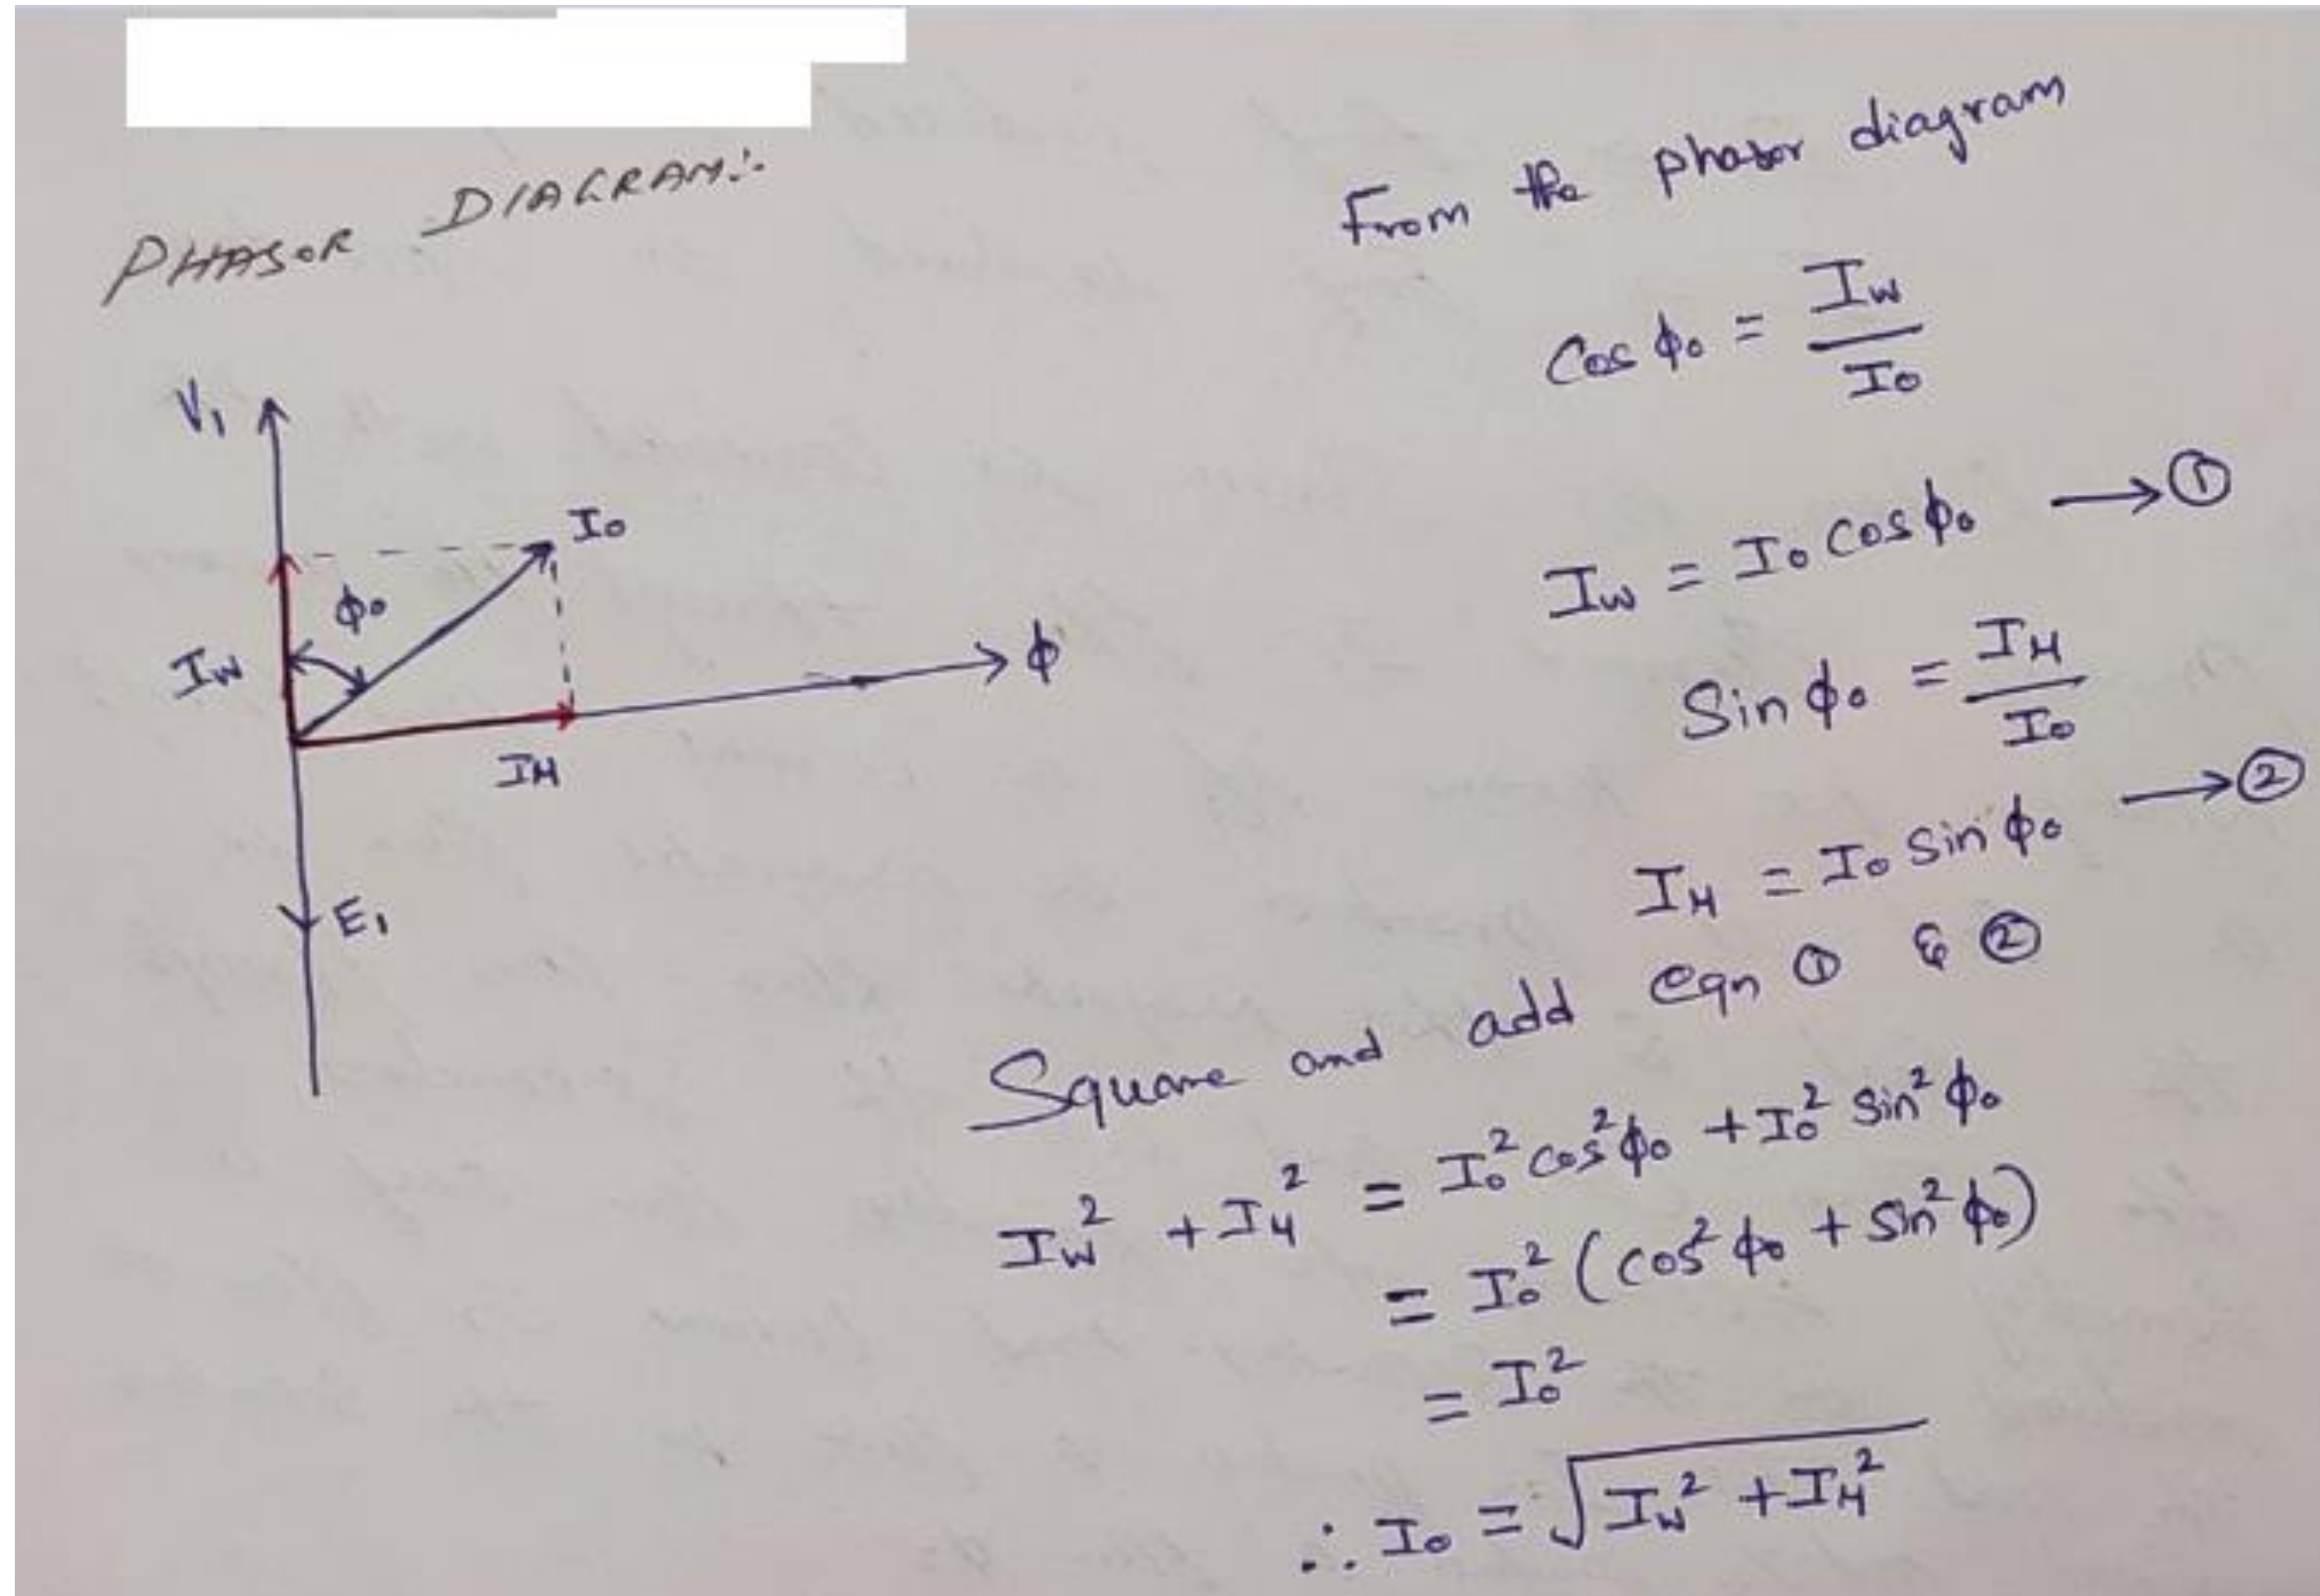 PHASOR DIAGRAM:-
V₁
I₀
ϕ₀
I_W
ϕ
I_M
E₁
From the phasor diagram
Cos ϕ₀ = I_W / I₀
I_W = I₀ cos ϕ₀ → ①
Sin ϕ₀ = I_M / I₀
I_M = I₀ sin ϕ₀ → ②
Square and add eqn ① & ②
I_W² + I_M² = I₀² cos² ϕ₀ + I₀² sin² ϕ₀
= I₀² (cos² ϕ₀ + sin² ϕ₀)
= I₀²
∴ I₀ = √(I_W² + I_M²)